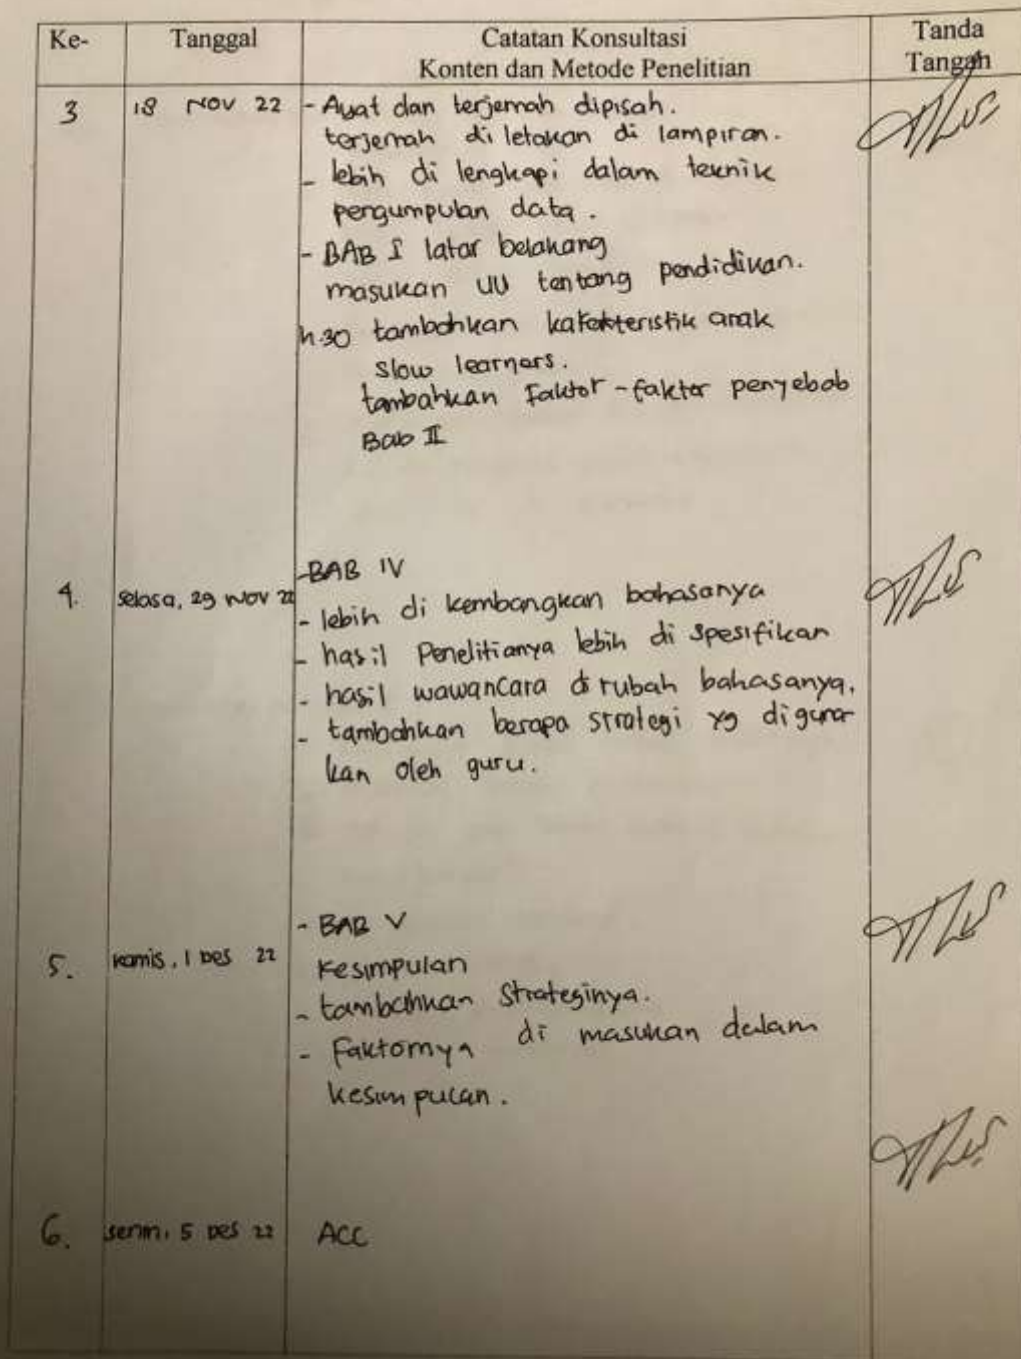 Ke- Tanggal Catatan Konsultasi Tanda
Konten dan Metode Penelitian Tangan
3 18 NOV 22 - Ayat dan terjemah dipisah.
terjemah di letakan di lampiran.
- lebih di lengkapi dalam teknik
pengumpulan data.
- BAB I latar belakang
masukan UU tentang pendidikan.
h.30 tambahkan karakteristik anak
slow learners.
tambahkan Faktor-faktor penyebab
Bab II
-BAB IV
4. selasa, 29 NOV 22 - lebih di kembangkan bahasanya
- hasil Penelitianya lebih di spesifikan
- hasil wawancara di rubah bahasanya.
- tambahkan berapa strategi yg diguna
kan oleh guru.
- BAB V
5. kamis, 1 Des 22 Kesimpulan
- tambahkan Strateginya.
- Faktornya di masukan dalam
kesimpulan.
6. senin, 5 Des 22 ACC